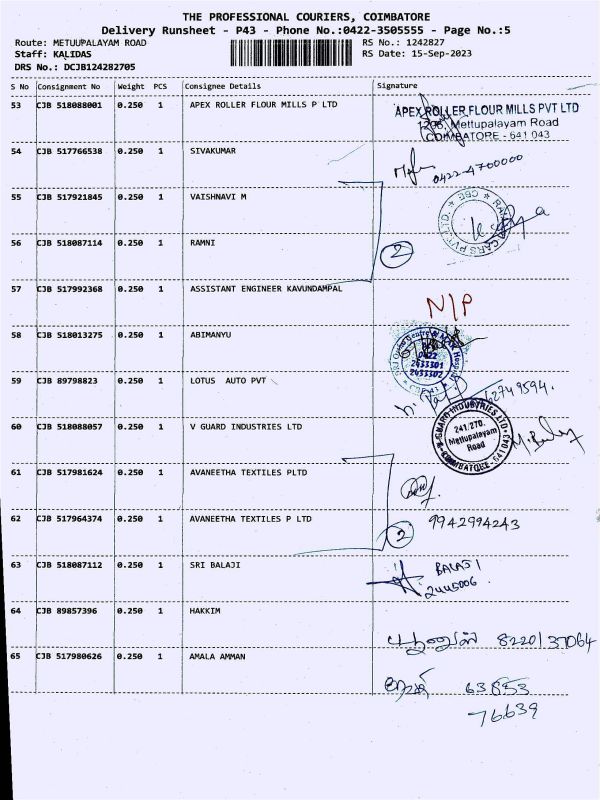 THE PROFESSIONAL COURIERS, COIMBATORE
Delivery Runsheet - P43 - Phone No.:0422-3505555 - Page No.:5
Route: METUUPALAYAM ROAD RS No.: 1242827
Staff: KALIDAS RS Date: 15-Sep-2023
DRS No.: DCJB124282705
S No Consignment No Weight PCS Consignee Details Signature
53 CJB 518088001 0.250 1 APEX ROLLER FLOUR MILLS P LTD
APEX ROLLER FLOUR MILLS PVT LTD
Mettupalayam Road
COIMBATORE - 641 043
54 CJB 517766538 0.250 1 SIVAKUMAR
0422-4700000
55 CJB 517921845 0.250 1 VAISHNAVI M
CARS PVT LTD. ★ CBE ★
56 CJB 518087114 0.250 1 RAMNI
2
57 CJB 517992368 0.250 1 ASSISTANT ENGINEER KAVUNDAMPAL
N/P
58 CJB 518013275 0.250 1 ABIMANYU
0422
2433301
2433302
59 CJB 89798823 0.250 1 LOTUS AUTO PVT
2749594.
60 CJB 518088057 0.250 1 V GUARD INDUSTRIES LTD
GUARD INDUSTRIES LTD
241/270.
Mettupalayam
Road
COIMBATORE-641043
61 CJB 517981624 0.250 1 AVANEETHA TEXTILES PLTD
62 CJB 517964374 0.250 1 AVANEETHA TEXTILES P LTD
2
9942994243
63 CJB 518087112 0.250 1 SRI BALAJI
BALAJI
2445006
64 CJB 89857396 0.250 1 HAKKIM
8220137064
65 CJB 517980626 0.250 1 AMALA AMMAN
63853
76639